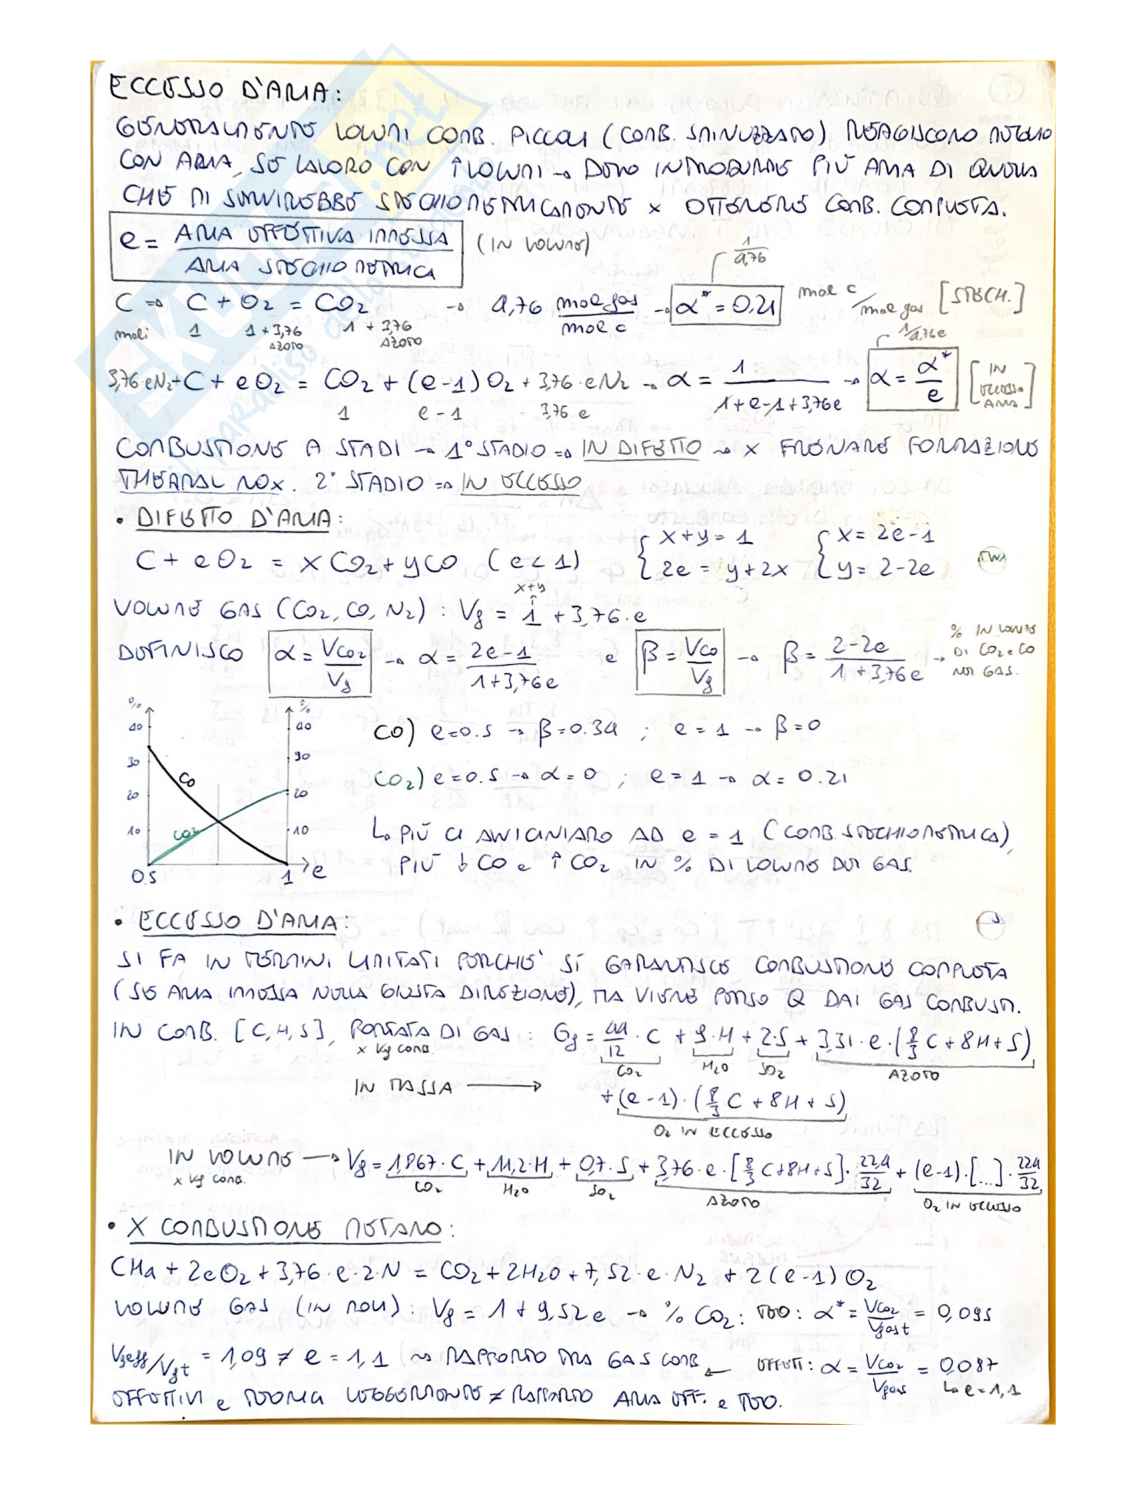 ECCESSO D'ARIA:
GENERALMENTE VOLUMI COMB. PICCOLI (COMB. SMINUZZATO) REAGISCONO MEGLIO
CON ARIA, SE LAVORO CON ↑VOLUMI → DEVO INTRODURRE PIÙ ARIA DI QUELLA
CHE MI SERVIREBBE STECHIOMETRICAMENTE x OTTENERE COMB. COMPLETA.
e = ARIA EFFETTIVA IMMESSA / ARIA STECHIOMETRICA (IN VOLUME)
1/4,76
C ⇒ C + O2 = CO2 → 4,76 mol gas / mol C → α* = 0.21 mol C / mol gas [STECH.]
moli 1 1+3,76 AZOTO 1+3,76 AZOTO
1/4,76e
3,76·eN2+C + eO2 = CO2 + (e-1)O2 + 3,76·eN2 → α = 1 / 1+e-1+3,76e → α = α*/e [IN ECCESSO ARIA]
1 e-1 3,76 e
COMBUSTIONE A STADI → 1° STADIO ⇒ IN DIFETTO → x FRENARE FORMAZIONE
THERMAL NOx. 2° STADIO ⇒ IN ECCESSO
• DIFETTO D'ARIA:
C + eO2 = xCO2 + yCO (e<1) { x+y = 1 2e = y+2x { x = 2e-1 y = 2-2e
x+y
VOLUME GAS (CO2, CO, N2): Vg = 1 + 3,76·e
DEFINISCO α = VCO2/Vg → α = 2e-1 / 1+3,76e e β = VCO/Vg → β = 2-2e / 1+3,76e → % IN VOLUME DI CO2 e CO NEI GAS.
% %
40 40
30 30
20 20
10 10
CO
CO2
0.5 1 e
CO) e=0.5 → β=0.34 ; e=1 → β=0
CO2) e=0.5 → α=0 ; e=1 → α=0.21
↳ PIÙ CI AVVICINIAMO AD e=1 (COMB. STECHIOMETRICA),
PIÙ ↓CO e ↑CO2 IN % DI VOLUME DEI GAS.
• ECCESSO D'ARIA:
SI FA IN TERMINI LIMITATI PERCHÈ SI GARANTISCE COMBUSTIONE COMPLETA
(SE ARIA IMMESSA NELLA GIUSTA DIREZIONE), MA VIENE PERSO Q DAI GAS COMBUSTI.
IN COMB. [C, H, S], PORTATA DI GAS: Gg = 44/12·C + 9·H + 2·S + 3,31·e·(8/3C+8H+S)
x Kg comb. CO2 H2O SO2 AZOTO
IN MASSA → +(e-1)·(8/3C+8H+S)
O2 IN ECCESSO
IN VOLUME → Vg = 1,867·C + 11,2·H + 0,7·S + 3,76·e·[8/3C+8H+S]·22,4/32 + (e-1)·[...]·22,4/32
x Kg comb. CO2 H2O SO2 AZOTO O2 IN ECCESSO
• X COMBUSTIONE METANO:
CH4 + 2eO2 + 3,76·e·2·N = CO2 + 2H2O + 7,52·e·N2 + 2(e-1)O2
VOLUME GAS (IN MOLI): Vg = 1 + 9,52e → % CO2: TEO: α* = VCO2/Vgast = 0,095
Vgeff/Vgt = 1,09 ≠ e = 1,1 → RAPPORTO TRA GAS COMB. ← EFFETT: α = VCO2/Vgas = 0,087
↳ e=1,1
EFFETTIVI e TEORICI LEGGERMENTE ≠ RAPPORTO ARIA EFF. e TEO.